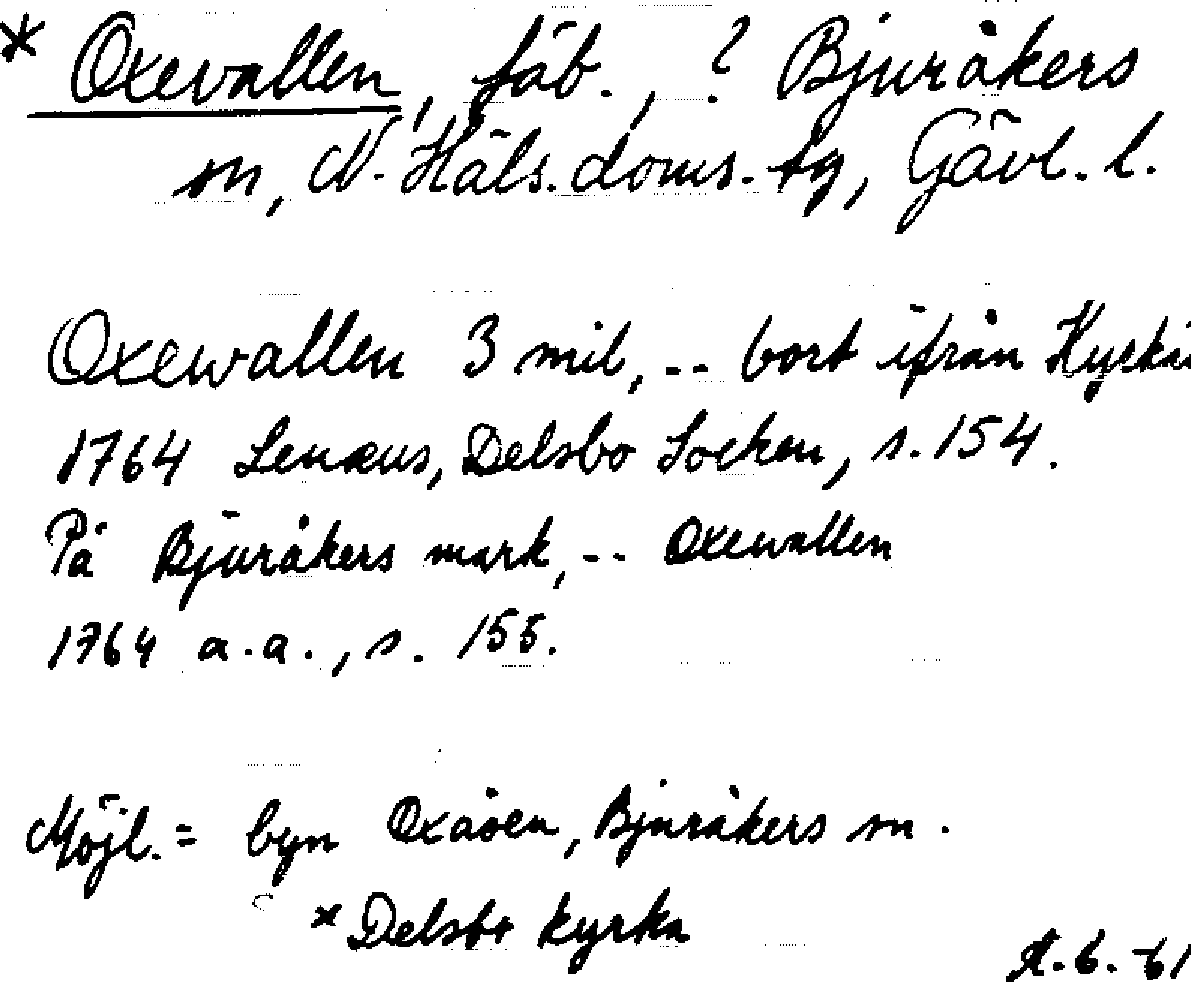 * Oxevallen, fäb., ? Bjuråkers
sn, N. Häls. doms. tg, Gävl. l.
Oxewallen 3 mil, -- bort ifrån
1764 Lenæus, Delsbo Socken, s. 154.
På Bjuråkers mark, -- Oxewallen
1764 a.a., s. 155.
Möjl. = byn Oxåsen, Bjuråkers sn.
* Delsbo kyrka